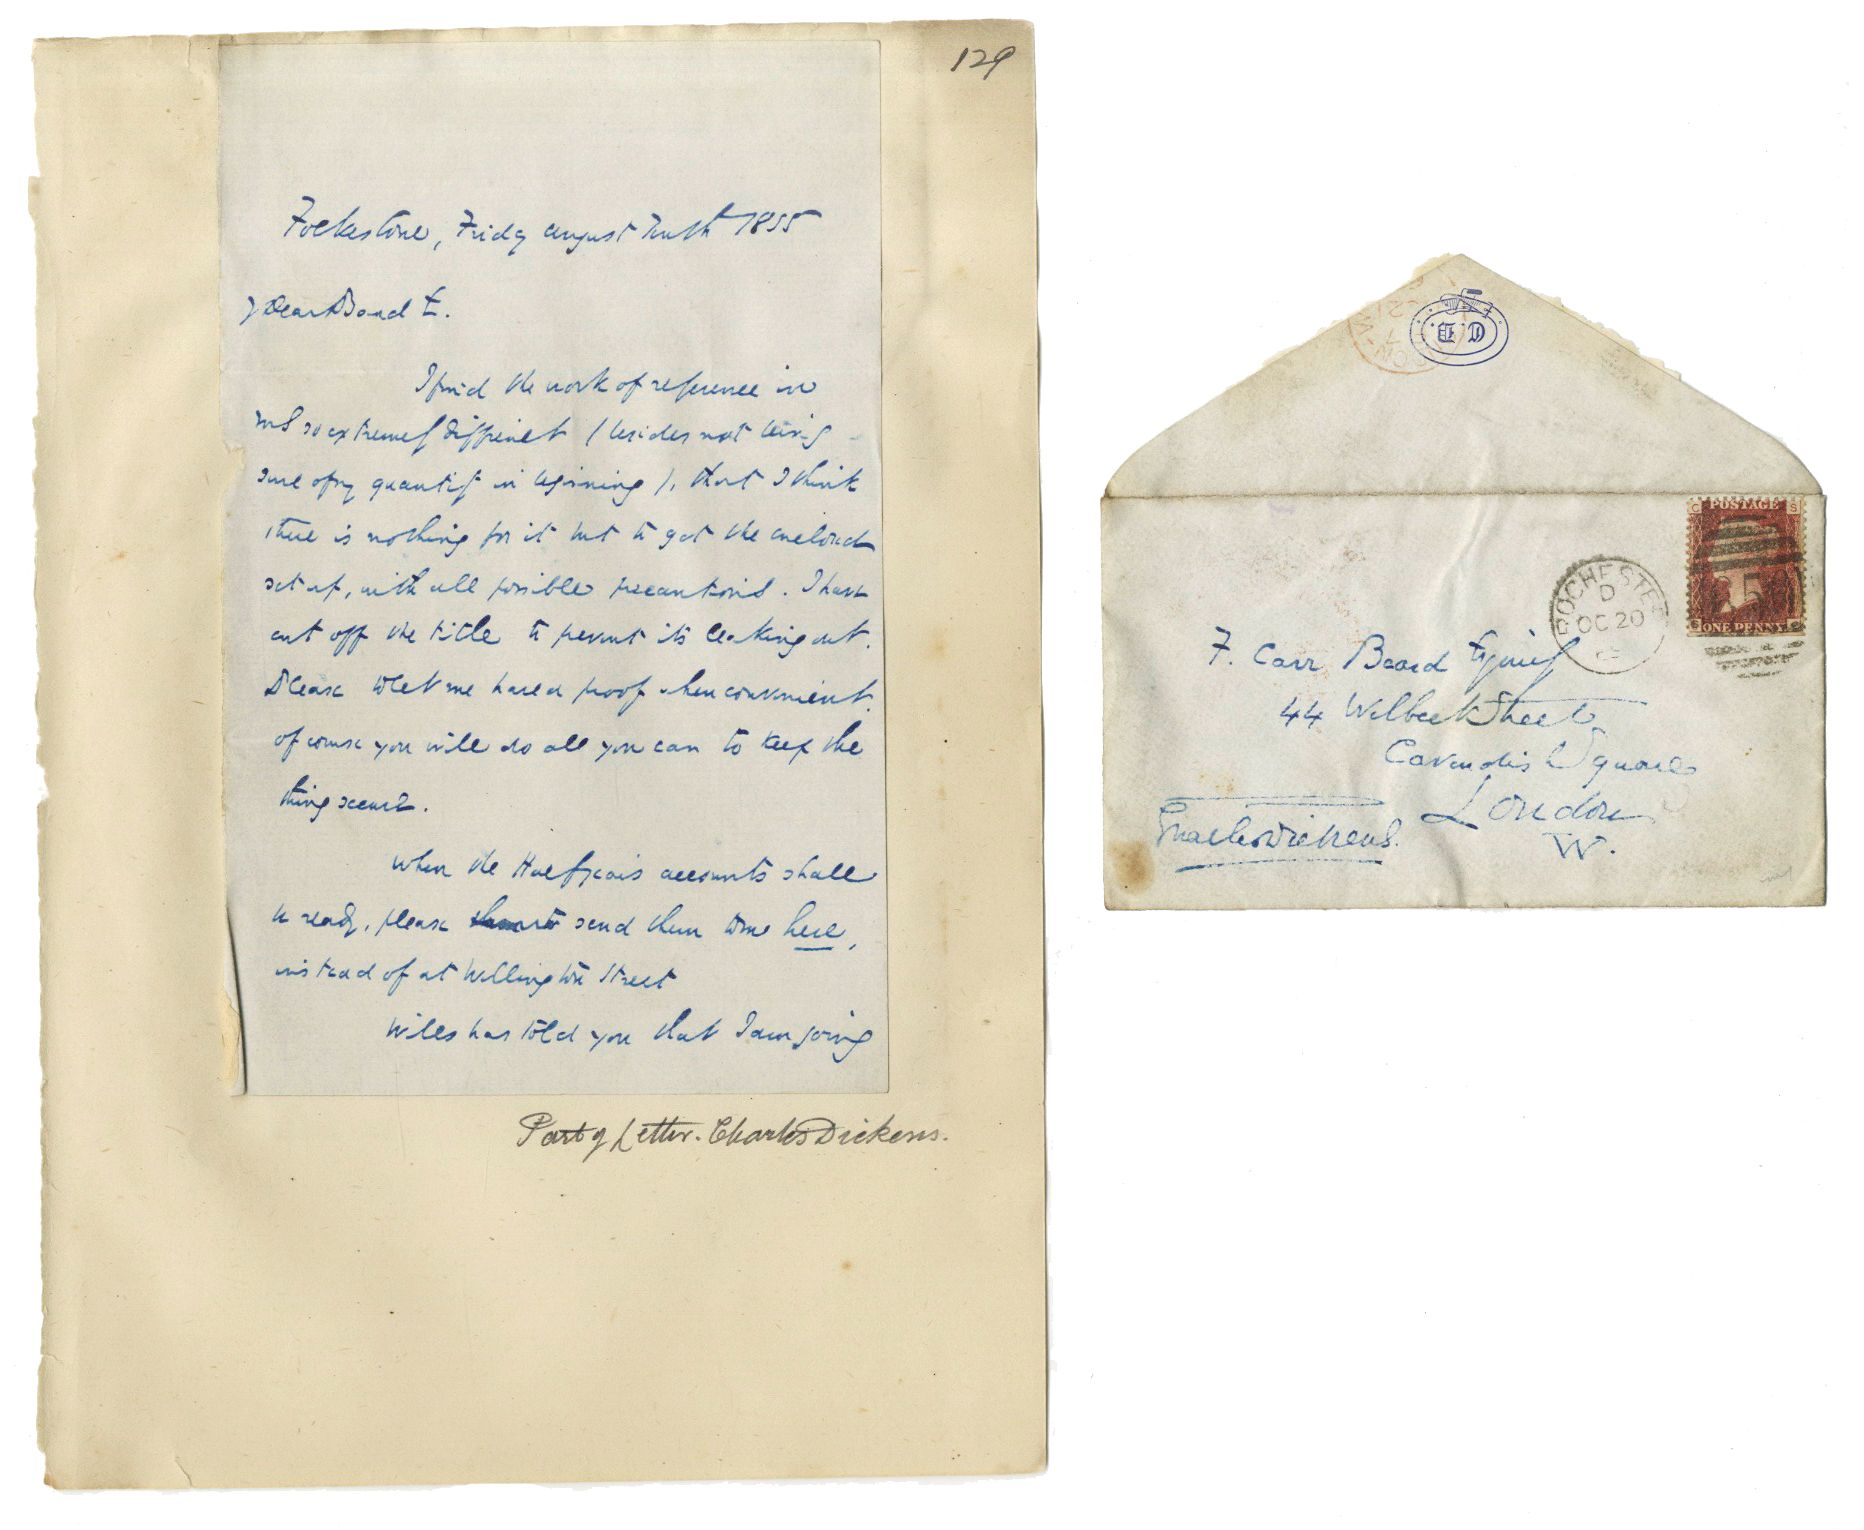 129
Folkestone, Friday August Tenth 1855
Dear B and E.
I find the work of reference in
MS so extremely difficult (besides not being
sure of my quantity in beginning), that I think
there is nothing for it but to get the enclosed
set up, with all possible precautions. I have
cut off the title to prevent its leaking out.
Please to let me have a proof when convenient.
Of course you will do all you can to keep the
thing secret.
When the Half years accounts shall
be ready, please send them to me here,
instead of at Wellington Street
Wills has told you that I am going
Part of Letter. Charles Dickens.
C.D.
C S
POSTAGE
S C
ONE PENNY
ROCHESTER
D
OC 20
F. Carr Beard Esquire
44 Welbeck Street
Cavendish Square
London
W.
Charles Dickens.